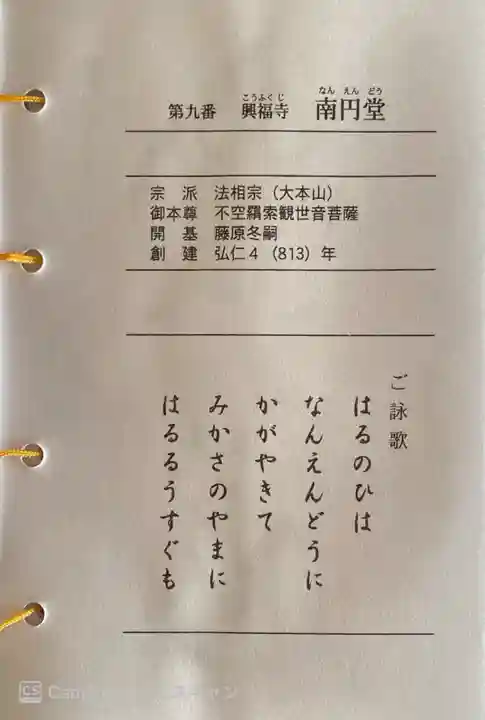 第九番 興福寺 南円堂
こうふくじ なんえんどう
宗派 法相宗（大本山）
御本尊 不空羂索観世音菩薩
開基 藤原冬嗣
創建 弘仁４（813）年
ご詠歌
はるのひは
なんえんどうに
かがやきて
みかさのやまに
はるるうすぐも
CS